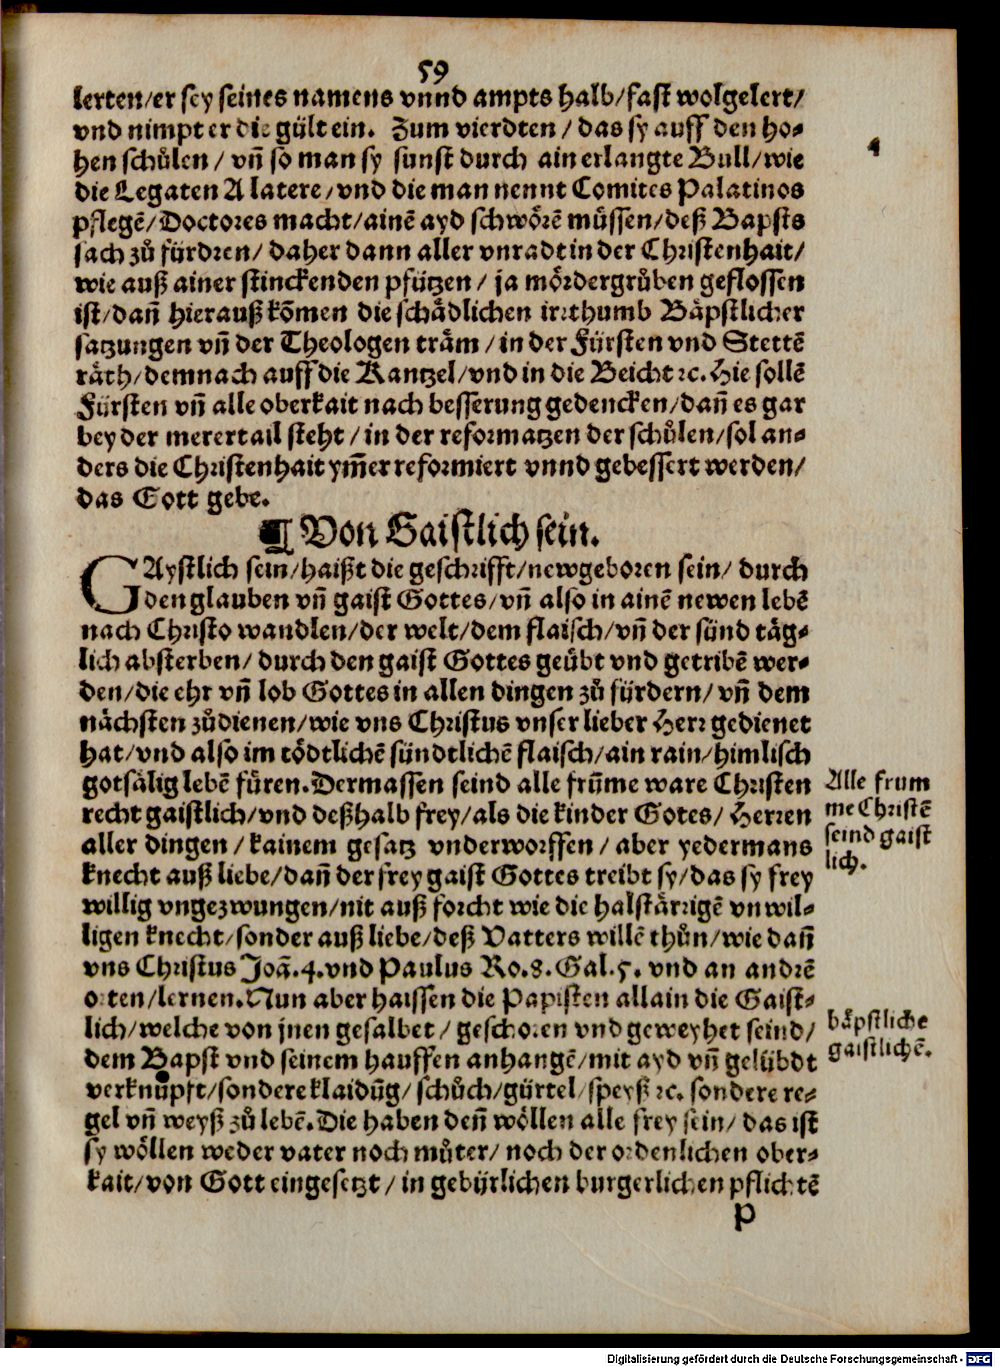 59
lerten/er sey seines namens vnnd ampts halb/fast wolgelert/
vnd nimpt er die gült ein. Zum vierdten / das sy auff den ho⸗
hen schůlen / vñ so man sy sunst durch ain erlangte Bull/wie
4
die Legaten A latere/vnd die man nennt Comites Palatinos
pflegẽ/Doctores macht/ainẽ ayd schwörẽ müssen/deß Bapsts
sach zů fürdren/ daher dann aller vnradt in der Christenhait/
wie auß ainer stinckenden pfützen / ja mördergrůben geflossen
ist/dañ hierauß kõmen die schädlichen irrthumb Bäpstlicher
satzungen vñ der Theologen träm /in der Fürsten vnd Stettẽ
räth/demnach auff die Kantzel/vnd in die Beicht ꝛc. Hie sollẽ
Fürsten vñ alle oberkait nach besserung gedencken/dañ es gar
bey der merertail steht / in der reformatzen der schůlen/sol an⸗
ders die Christenhait ym̃er reformiert vnnd gebessert werden/
das Gott gebe.
¶ Von Gaistlich sein.
GAystlich sein/haißt die geschrifft/newgeboren sein/ durch
den glauben vñ gaist Gottes/vñ also in ainẽ newen lebẽ
nach Christo wandlen/der welt/dem flaisch/vñ der sünd täg⸗
lich absterben/ durch den gaist Gottes geübt vnd getribẽ wer⸗
den/die ehr vñ lob Gottes in allen dingen zů fürdern/ vñ dem
nächsten zůdienen/wie vns Christus vnser lieber Herr gedienet
hat/vnd also im tödtlichẽ sündtlichẽ flaisch/ain rain/himlisch
gotsälig lebẽ füren. Dermassen seind alle frum̃e ware Christen
recht gaistlich/vnd deßhalb frey/als die kinder Gotes/ Herren
aller dingen / kainem gesatz vnderworffen / aber yedermans
knecht auß liebe/dañ der frey gaist Gottes treibt sy/das sy frey
willig vngezwungen/nit auß forcht wie die halstärrigẽ vnwil⸗
ligen knecht/sonder auß liebe/deß Vatters willẽ thůn/wie dañ
vns Christus Joã.4.vnd Paulus Ro.8. Gal.5. vnd an andrẽ
orten/lernen. Nun aber haissen die Papisten allain die Gaist⸗
lich/welche von jnen gesalbet / geschoren vnd geweyhet seind/
dem Bapst vnd seinem hauffen anhangẽ/mit ayd vñ gelübdt
verknüpft/sondere klaidũg/ schůch/gürtel/speyß ꝛc. sondere re⸗
gel vñ weyß zů lebẽ. Die haben deñ wöllen alle frey sein/ das ist
sy wöllen weder vater noch můter/ noch der ordenlichen ober⸗
kait/von Gott eingesetzt / in gebürlichen burgerlichen pflichtẽ
P
Alle frum
me Christẽ
seind gaist
lich.
bäpstliche
gaistlichẽ.
Digitalisierung gefördert durch die Deutsche Forschungsgemeinschaft - DFG